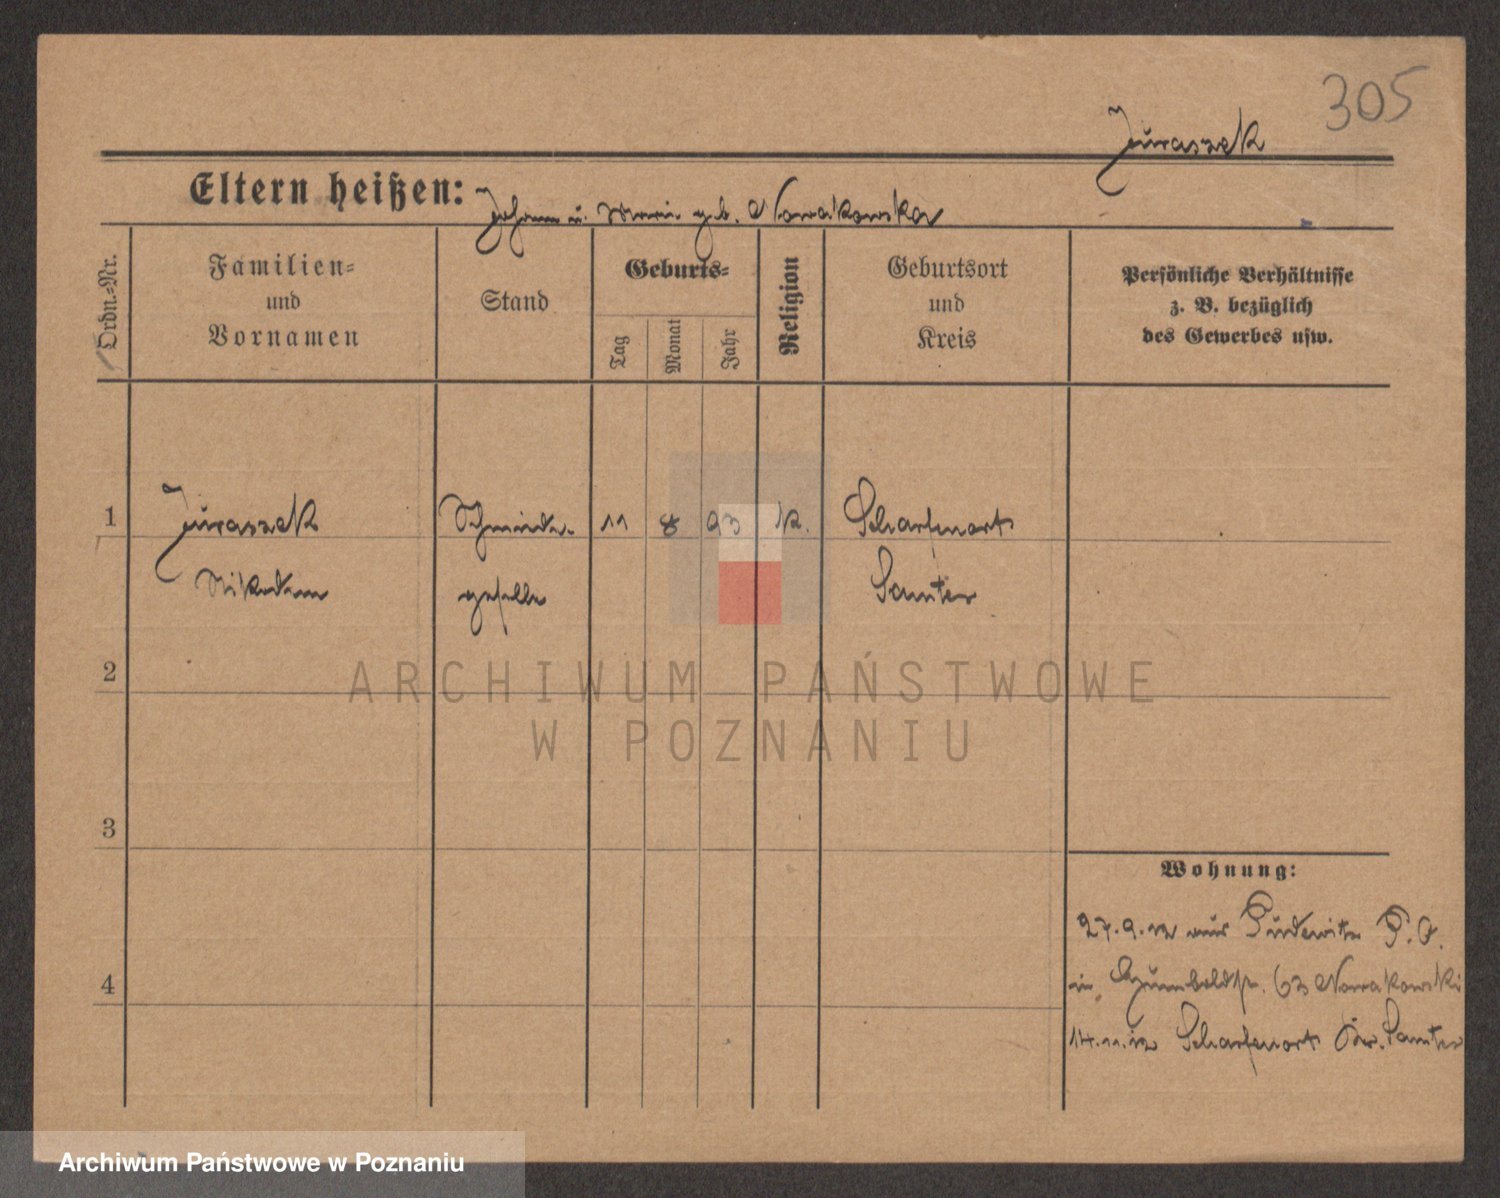 305
Juraszek
Eltern heißen: Johann u. Marie geb. Nowakowska
Ordn.-Nr.
Familien-
und
Vornamen
Stand
Geburts-
Tag
Monat
Jahr
Religion
Geburtsort
und
Kreis
Persönliche Verhältnisse
z. B. bezüglich
des Gewerbes usw.
1 Juraszek Schmiede- 11 8 93 k. Scharfenort
Nikodem geselle Samter
2
3
4
Wohnung:
27.9.12 aus Pudewitz P.O.
in Humboldtstr. 63 Nowakowski
14.11.12 Scharfenort Kr. Samter
ARCHIWUM PAŃSTWOWE
W POZNANIU
Archiwum Państwowe w Poznaniu